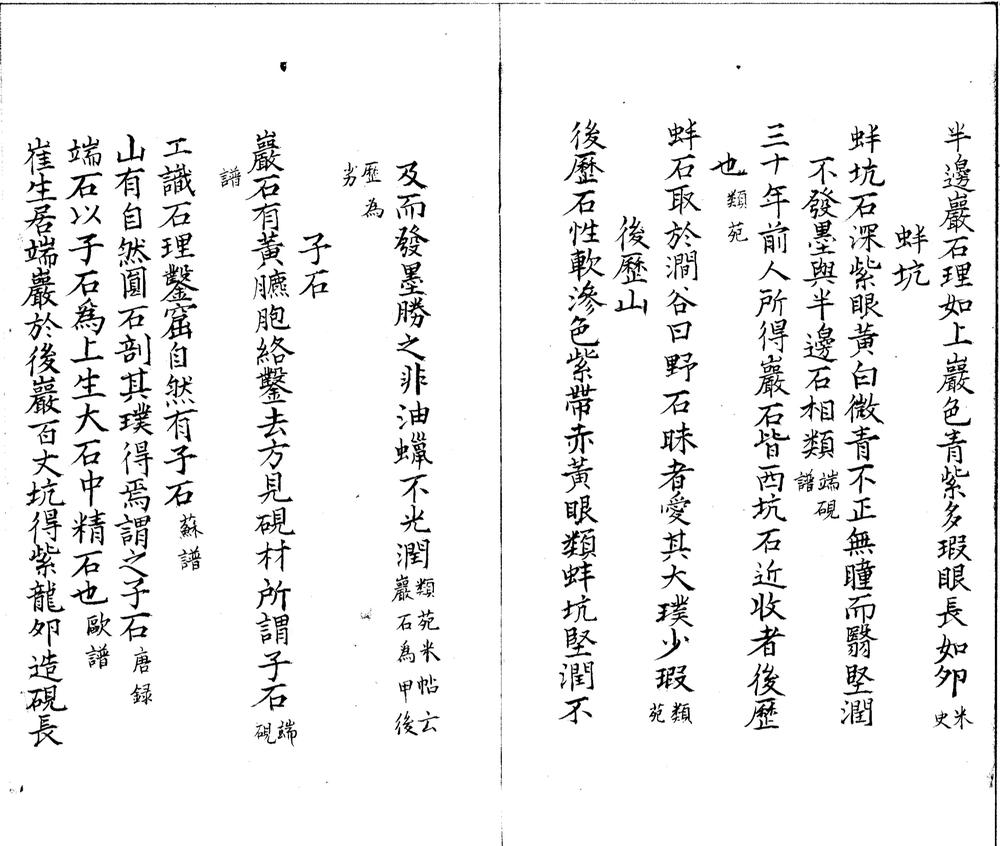 半邊巖石理如上巖色青紫多瑕眼長如夘米史
蚌坑
蚌坑石深紫眼黃白微青不正無瞳而翳堅潤
不發墨與半邊石相類端硯譜
三十年前人所得巖石皆西坑石近收者後歷
也類苑
蚌石取於澗谷曰野石昧者愛其大璞少瑕類苑
後歷山
後歷石性軟滲色紫帶赤黃眼類蚌坑堅潤不
及而發墨勝之非油蠟不光潤類苑米帖云巖石為甲後
歷為劣
子石
巖石有黃臕胞絡鑿去方見硯材所謂子石端硯
譜
工識石理鑿窟自然有子石蘇譜
山有自然圓石剖其璞得焉謂之子石唐録
端石以子石爲上生大石中精石也歐譜
崔生居端巖於後巖百丈坑得紫龍夘造硯長